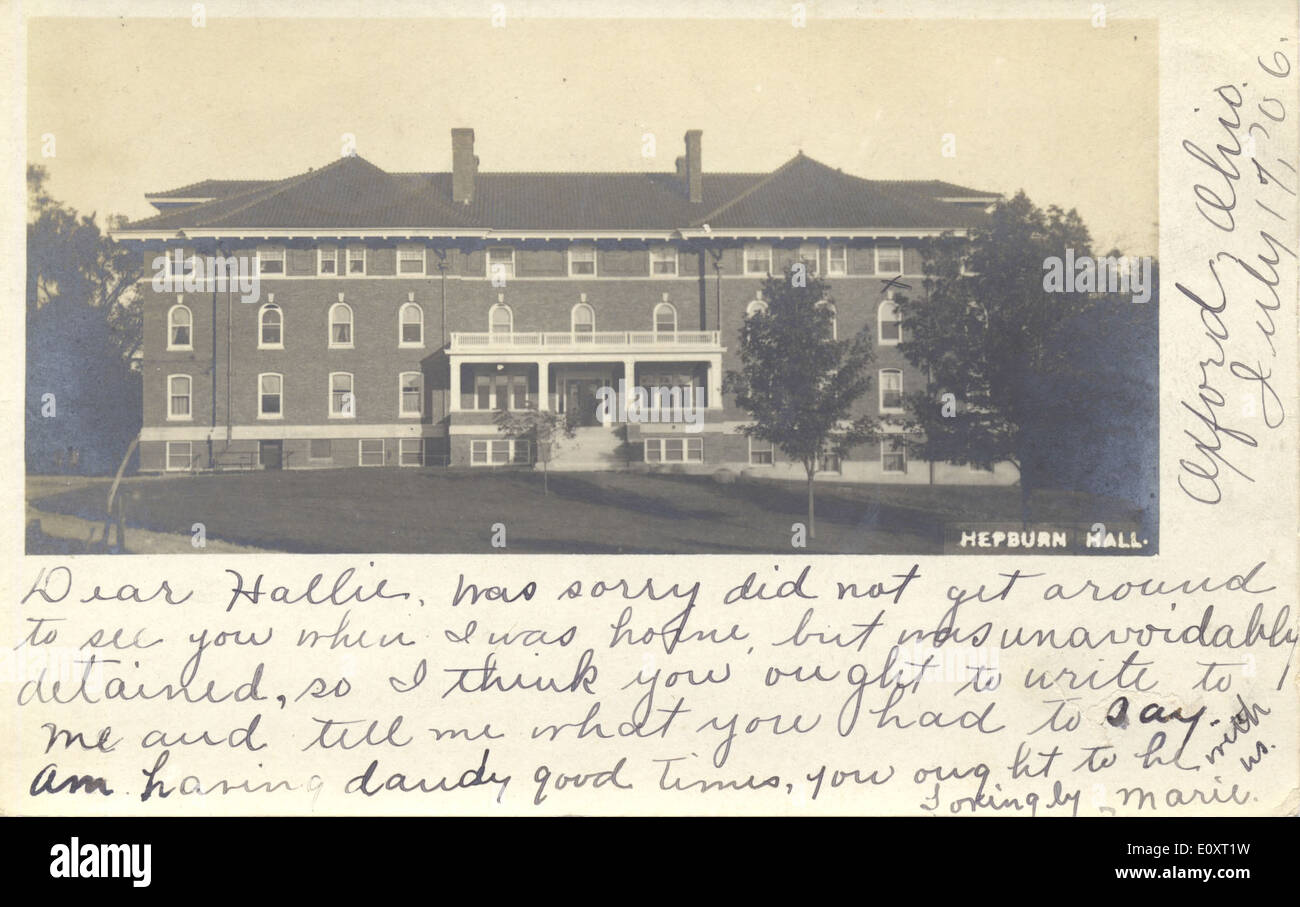 Oxford, Ohio.
July 17, '06.
HEPBURN HALL.
Dear Hallie, Was sorry did not get around
to see you when I was home, but was unavoidably
detained, so I think you ought to write to
me and tell me what you had to say.
Am having dandy good times, you ought to be with us.
Lovingly Marie.
alamy
Image ID: E0XT1W
www.alamy.com